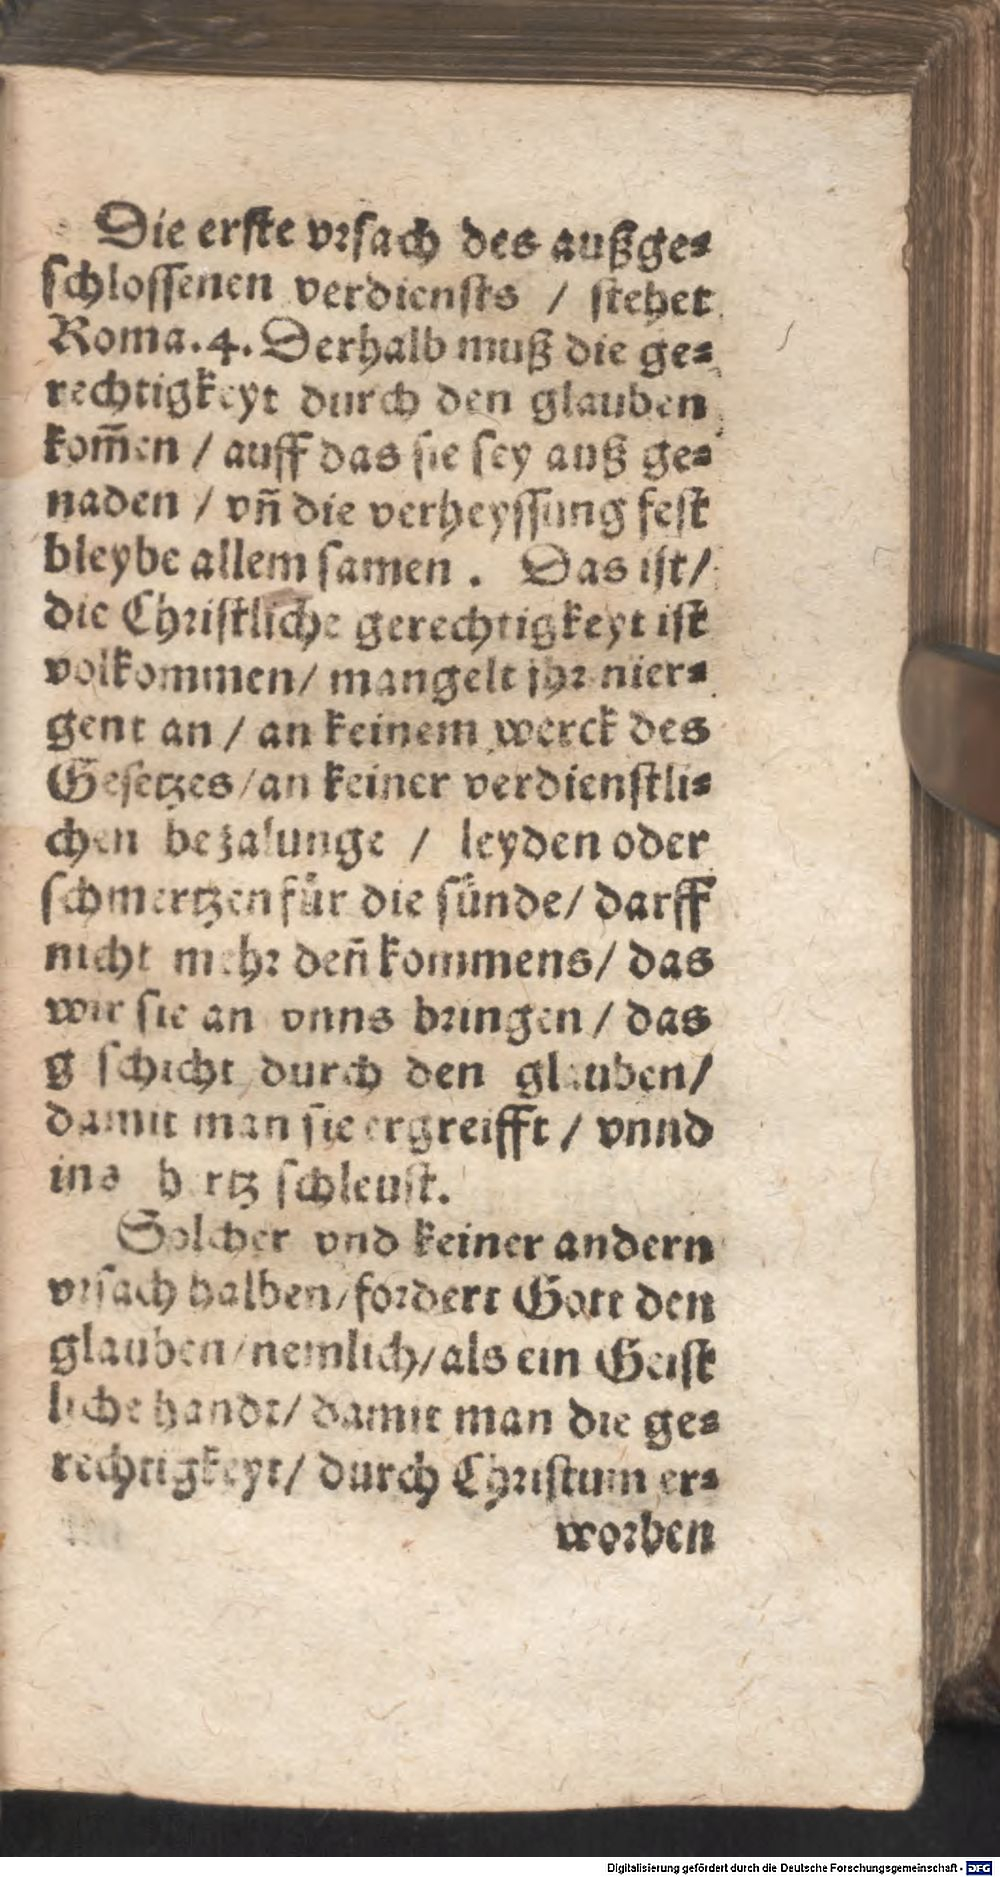 Die erste vrsach des außge-
schlossenen verdiensts / stehet
Roma.4. Derhalb muß die ge-
rechtigkeyt durch den glauben
kom̃en / auff das sie sey auß ge-
naden / vñ die verheyssung fest
bleybe allem samen . Das ist/
die Christliche gerechtigkeyt ist
volkommen/ mangelt jhr nier-
gent an / an keinem werck des
Gesetzes/an keiner verdienstli-
chen bezalunge / leyden oder
schmertzen für die sünde/ darff
nicht mehr deñ kommens/ das
wir sie an vnns bringen / das
gschicht durch den glauben/
damit man sie ergreifft / vnnd
ins hertz schleust.
Solcher vnd keiner andern
vrsach halben/fordert Gott den
glauben/nemlich/als ein Geist
liche handt/ damit man die ge-
rechtigkeyt/ durch Christum er-
worben
Digitalisierung gefördert durch die Deutsche Forschungsgemeinschaft - DFG